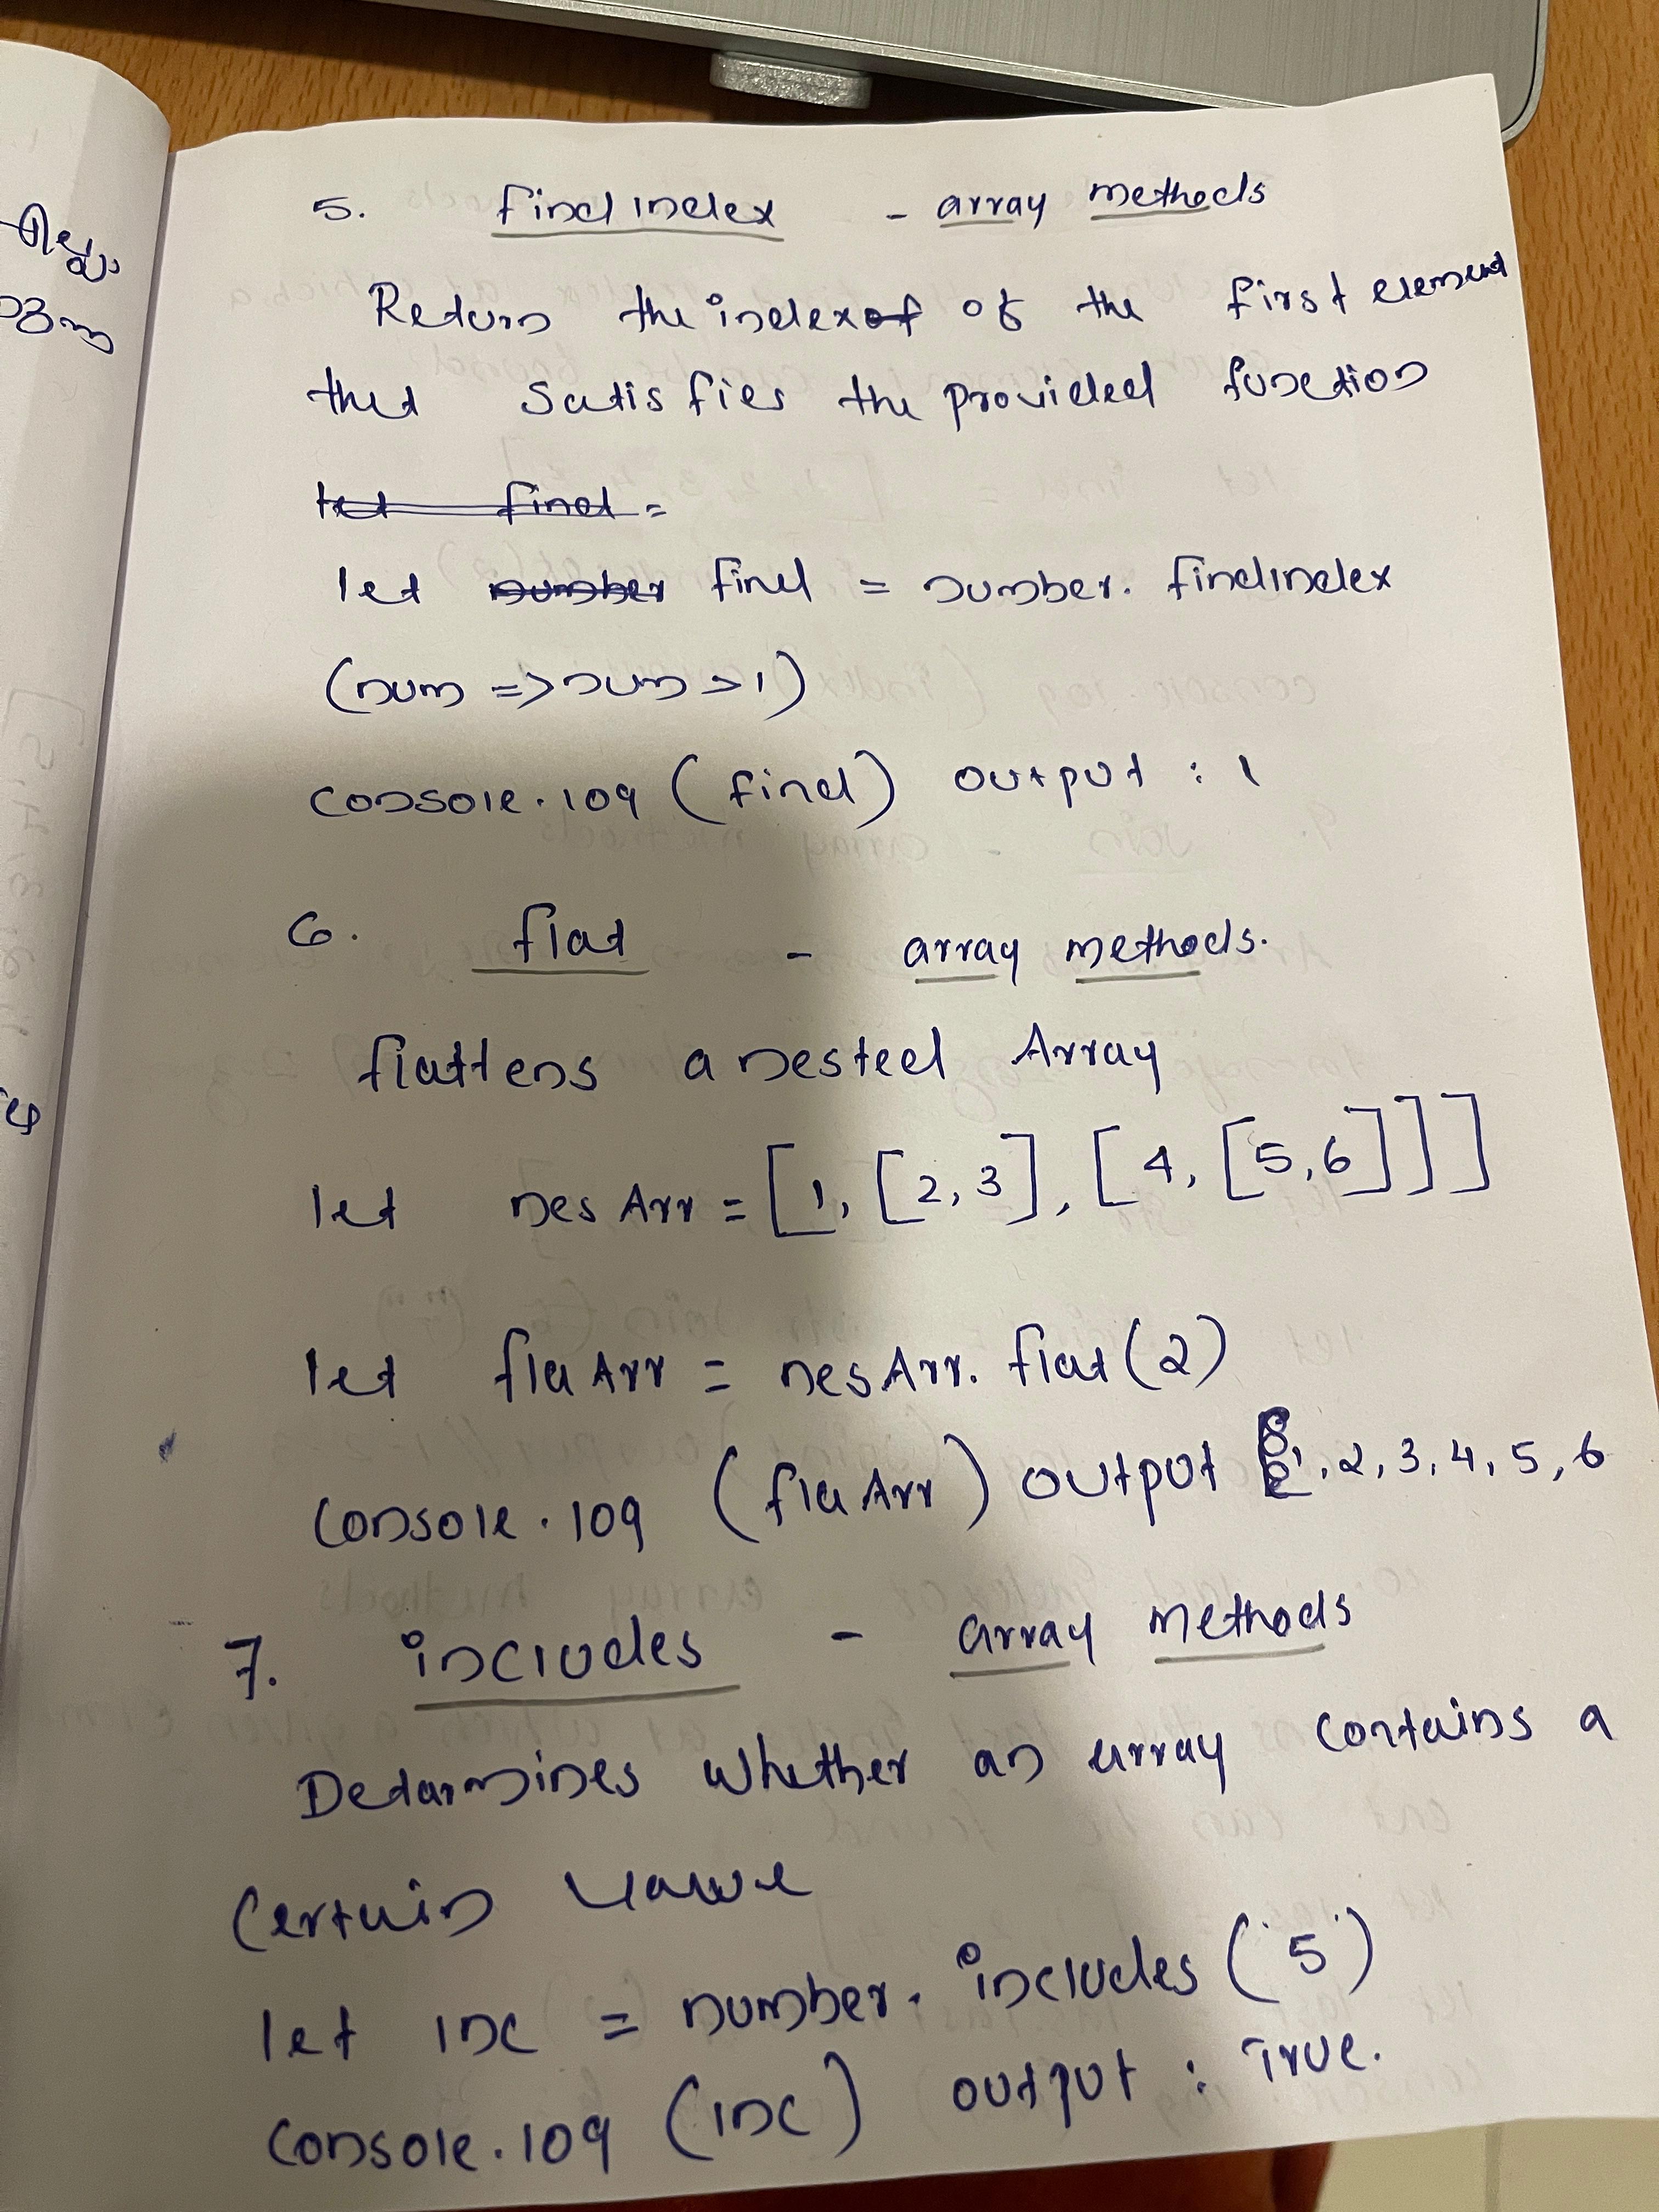 5. findindex - array methods
Return the index of of the first element
that satisfies the provided function
let find =
let number find = number. findindex
(num => num > 1)
console.log (find) output : 1
6. flat - array methods.
flattens a nested Array
let nes Arr = [1, [2, 3], [4, [5,6]]]
let fla Arr = nes Arr. flat (2)
console.log (fla Arr) output 1, 2, 3, 4, 5, 6
7. includes - array methods
Detarmines whether an array contains a
certain value
let inc = number. includes (5)
console.log (inc) output : True.